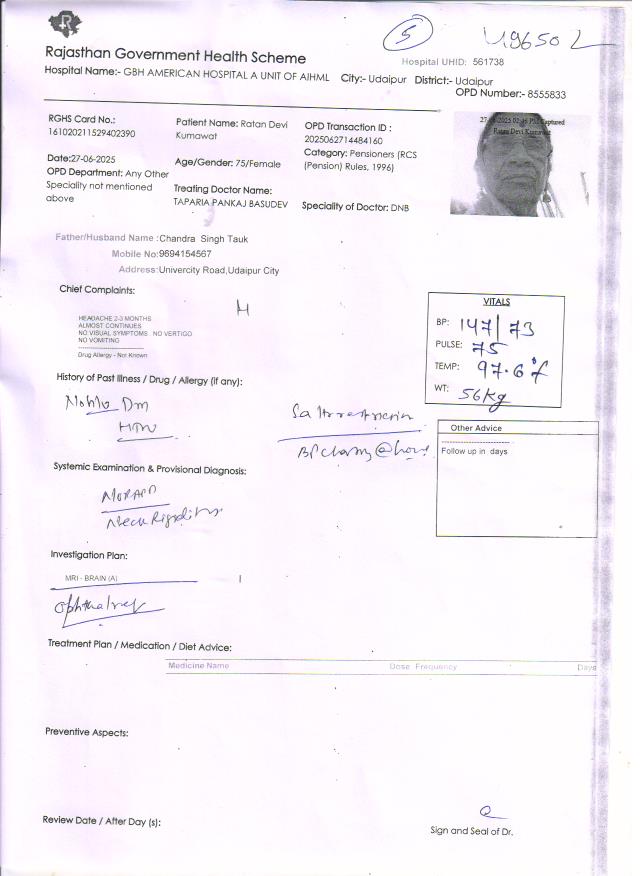 5
Rajasthan Government Health Scheme
Hospital UHID: 561738
Hospital Name:- GBH AMERICAN HOSPITAL A UNIT OF AIHML City:- Udaipur District:- Udaipur
OPD Number:- 8555833
RGHS Card No.:
161020211529402390
Patient Name: Ratan Devi
Kumawat
OPD Transaction ID :
2025062714484160
Category: Pensioners (RCS
(Pension) Rules, 1996)
Captured
Ratan Devi Kumawat
Date:27-06-2025
OPD Department: Any Other
Speciality not mentioned
above
Age/Gender: 75/Female
Treating Doctor Name:
TAPARIA PANKAJ BASUDEV
Speciality of Doctor: DNB
Father/Husband Name :Chandra Singh Tauk
Mobile No:9694154567
Address:Univercity Road,Udaipur City
Chief Complaints:
H
HEADACHE 2-3 MONTHS
ALMOST CONTINUES
NO VISUAL SYMPTOMS . NO VERTIGO
NO VOMITING
--------------------
Drug Allergy - Not Known
VITALS
BP: 147/73
PULSE: 75
TEMP: 97.6°f
WT: 56Kg
History of Past Illness / Drug / Allergy (if any):
DM
HTN
Salt restriction
BP @ home
Other Advice
--------------------
Follow up in days
Systemic Examination & Provisional Diagnosis:
Neck Rigidity
Investigation Plan:
MRI - BRAIN (A) 1
Treatment Plan / Medication / Diet Advice:
Medicine Name Dose Frequency Days
Preventive Aspects:
Review Date / After Day (s):
Sign and Seal of Dr.